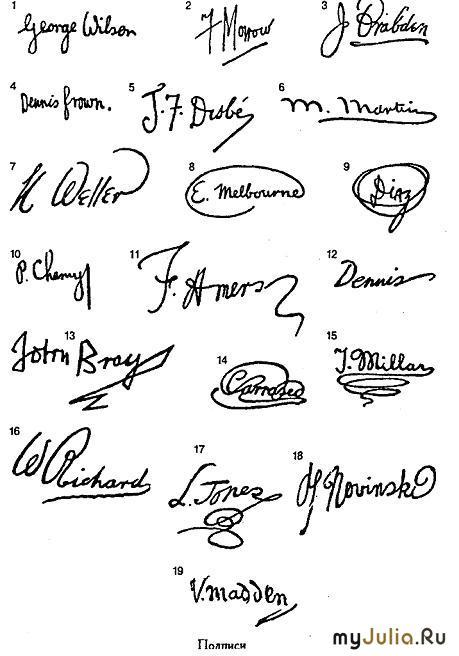 1 George Wilson
2 F Morrow
3 J Drabden
4 Dennis frown.
5 J. F. Disbé
6 M. Martin
7 K Weller
8 E. Melbourne
9 Diaz
10 P. Chamy
11 F. Amers
12 Dennis
13 John Bray
14 Carrased
15 J. Millar
16 W Richard
17 L. Jones
18 H. Novinski
19 V. madden
Подписи
myJulia.Ru